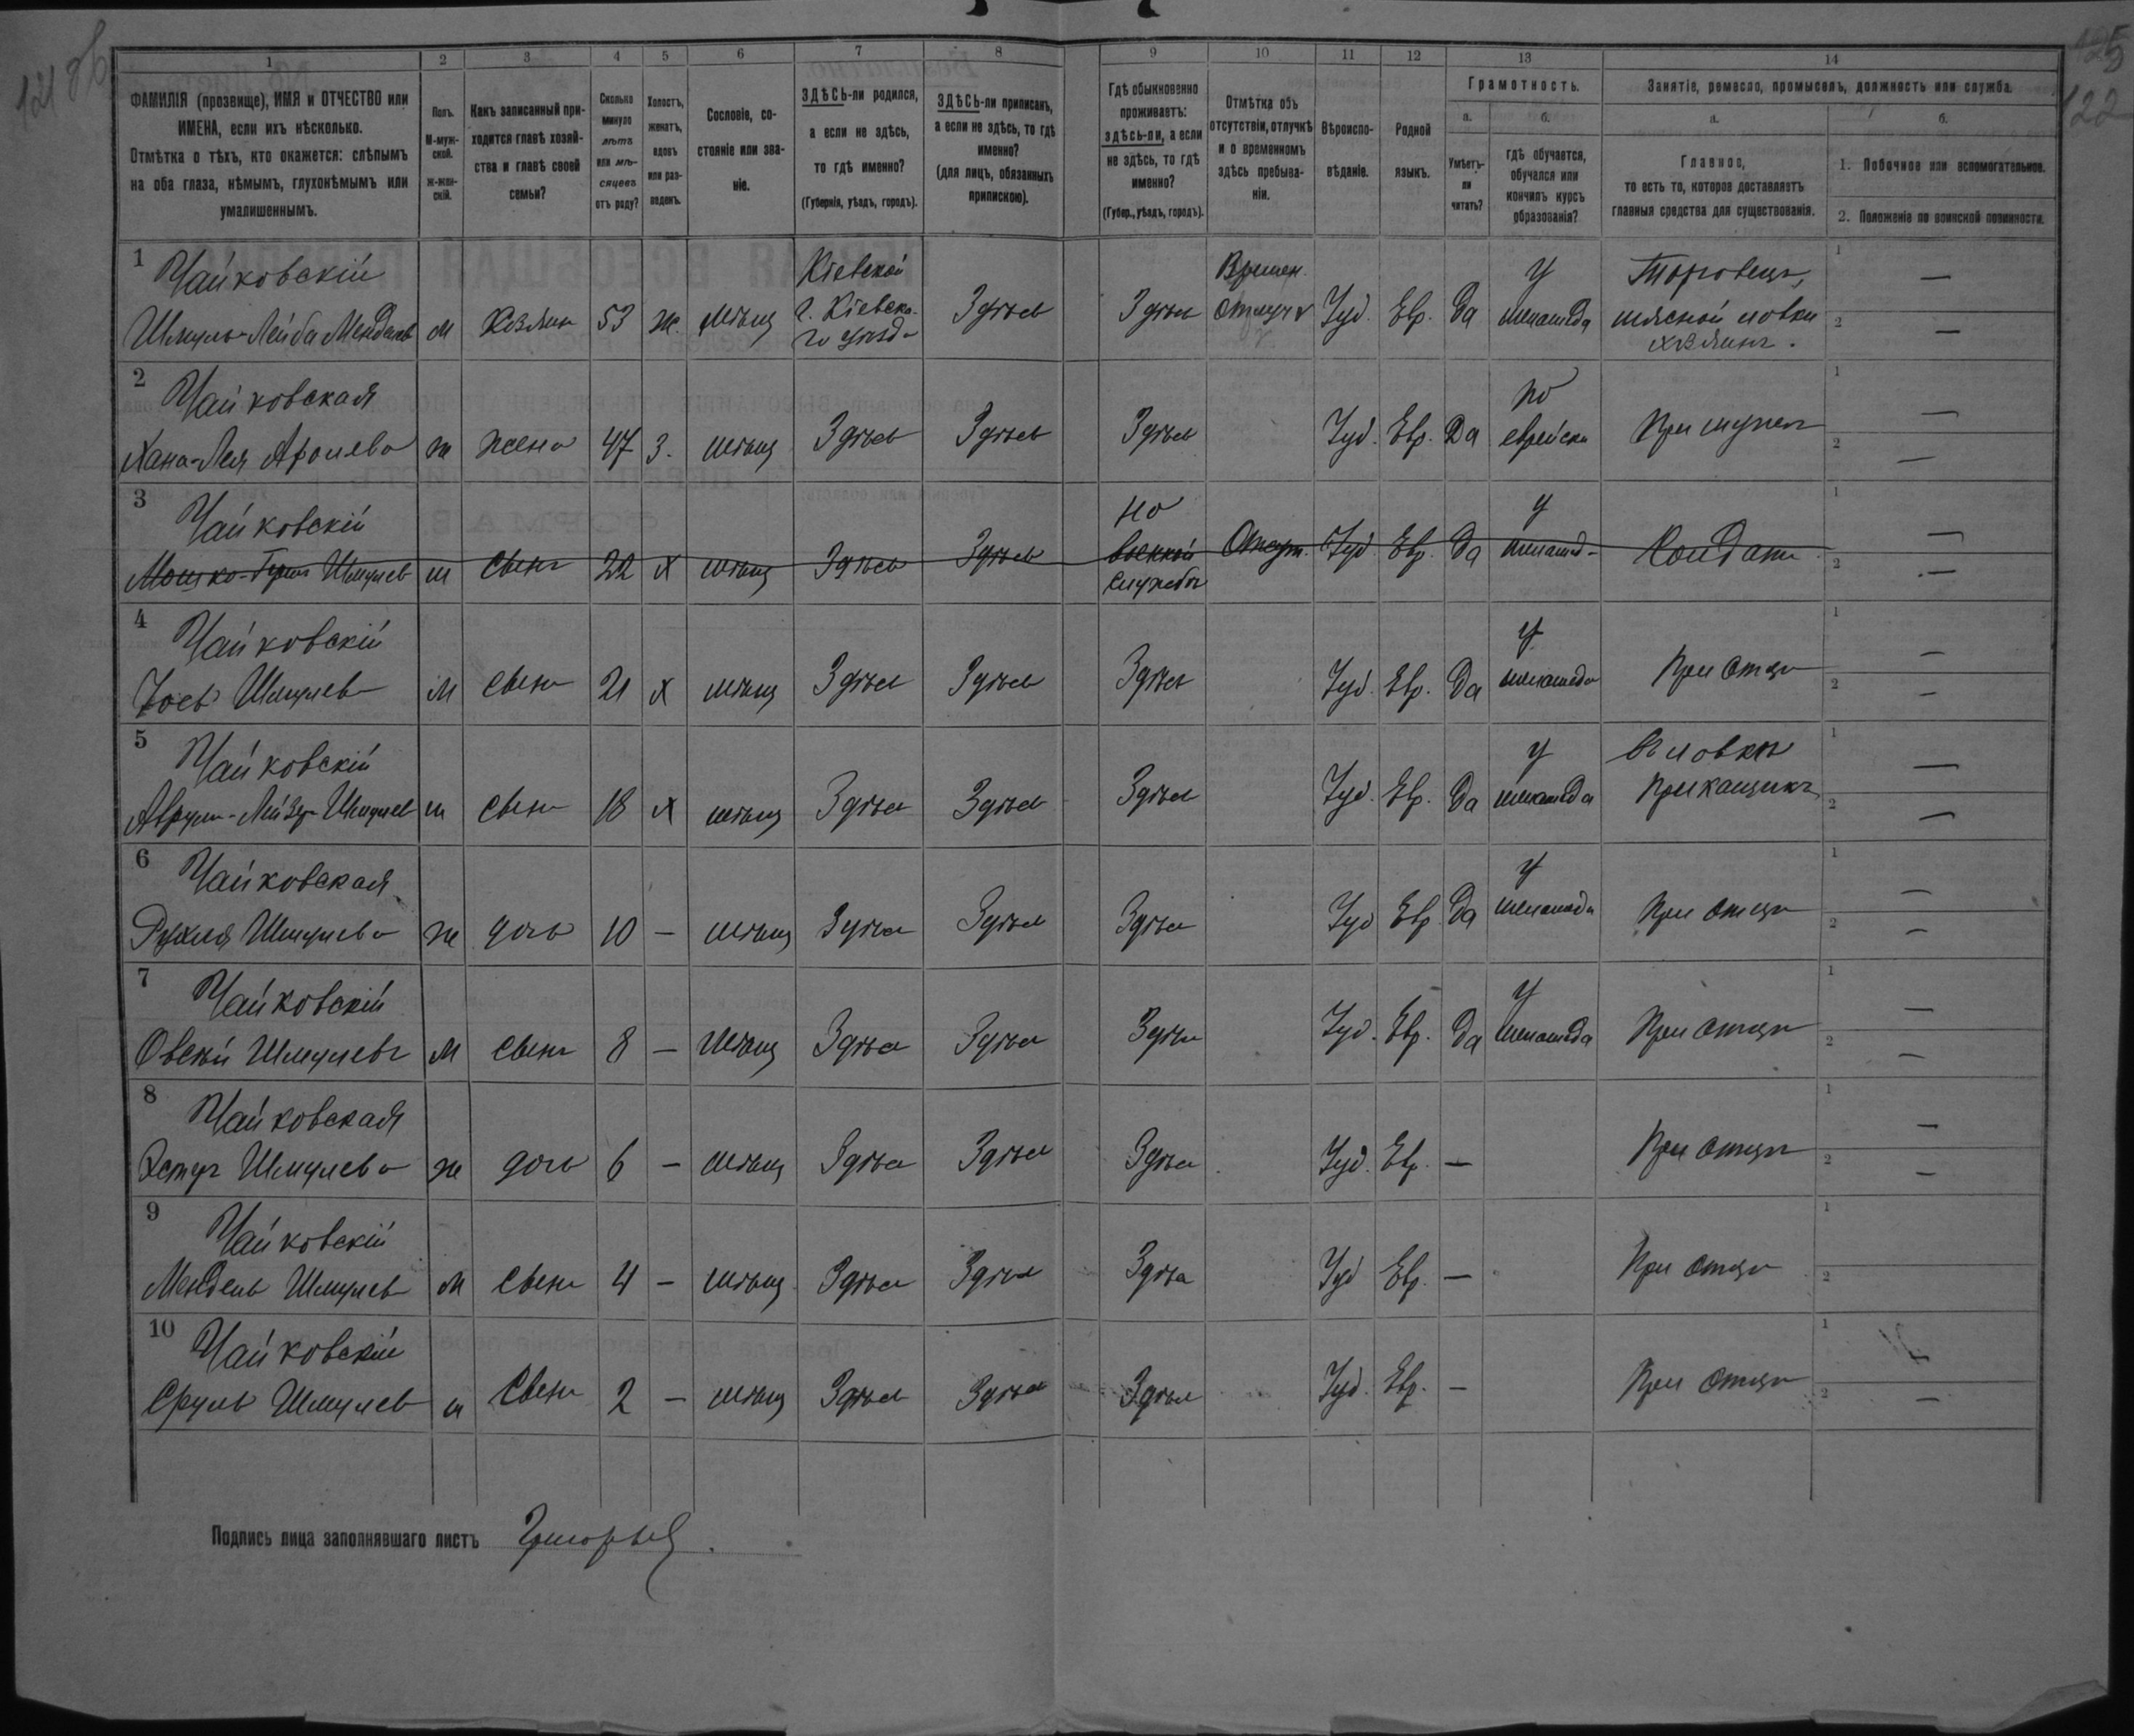 121 об
125
122
1 2 3 4 5 6 7 8 9 10 11 12 13 14
ФАМИЛІЯ (прозвище), ИМЯ и ОТЧЕСТВО или
ИМЕНА, если ихъ нѣсколько.
Отмѣтка о тѣхъ, кто окажется: слѣпымъ
на оба глаза, нѣмымъ, глухонѣмымъ или
умалишеннымъ.
Полъ.
М-муж-
ской.
ж-жен-
скій.
Какъ записанный при-
ходится главѣ хозяй-
ства и главѣ своей
семьи?
Сколько
минуло
лѣтъ
или мѣ-
сяцевъ
отъ роду?
Холостъ,
женатъ,
вдовъ
или раз-
веденъ.
Сословіе, со-
стояніе или зва-
ніе.
ЗДѢСЬ-ли родился,
а если не здѣсь,
то гдѣ именно?
(Губернія, уѣздъ, городъ).
ЗДѢСЬ-ли приписанъ,
а если не здѣсь, то гдѣ
именно?
(для лицъ, обязанныхъ
припискою).
Гдѣ обыкновенно
проживаетъ:
здѣсь-ли, а если
не здѣсь, то гдѣ
именно?
(Губер., уѣздъ, городъ).
Отмѣтка объ
отсутствіи, отлучкѣ
и о временномъ
здѣсь пребыва-
ніи.
Вѣроиспо-
вѣданіе.
Родной
языкъ.
Грамотность.
а.
Умѣетъ-
ли
читать?
б.
гдѣ обучается,
обучался или
кончилъ курсъ
образованія?
Занятіе, ремесло, промыселъ, должность или служба.
а.
Главное,
то есть то, которое доставляетъ
главныя средства для существованія.
б.
1. Побочное или вспомогательное.
2. Положеніе по воинской повинности.
1 Чайковскій Кіевской Времен. у Торговецъ, 1 —
Шмуль-Лейба Менделев м 53 ж. мѣщ г. Кіевска- Здѣсь Здѣсь Іуд. Евр. да меламеда мясной лавки 2 —
го уѣзда хозяинъ.
2 Чайковская по 1 —
Хана-Лея Аронова ж жена 47 З. мѣщ Здѣсь Здѣсь Здѣсь Іуд. Евр. Да еврейски При мужѣ 2 —
3 Чайковскій На у 1 —
Шмулев м сынъ 22 х мѣщ Здѣсь Здѣсь военной Отсут. Іуд. Евр. да меламед Солдатъ 2 —
службѣ
4 Чайковскій у 1 —
Іось Шмулев м сынъ 21 х мѣщ Здѣсь Здѣсь Здѣсь Іуд. Евр. Да меламеда При отцѣ 2 —
5 Чайковскій у въ лавкѣ 1 —
Аврум-Лейзер Шмулев м сынъ 18 х мѣщ Здѣсь Здѣсь Здѣсь Іуд. Евр. Да меламеда Прикащикъ 2 —
6 Чайковская у 1 —
Рухля Шмулева ж дочь 10 — мѣщ Здѣсь Здѣсь Здѣсь Іуд Евр Да меламеда При отцѣ 2 —
7 Чайковскій у 1 —
Овсей Шмулевъ м сынъ 8 — мѣщ Здѣсь Здѣсь Здѣсь Іуд. Евр. Да меламеда При отцѣ 2 —
8 Чайковская 1 —
Шмулева ж дочь 6 — мѣщ Здѣсь Здѣсь Здѣсь Іуд. Евр. — При отцѣ 2 —
9 Чайковскій 1
Мендель Шмулев м сынъ 4 — мѣщ Здѣсь Здѣсь Здѣсь Іуд Евр. — При отцѣ 2
10 Чайковскій 1
Сруль Шмулев м сынъ 2 — мѣщ Здѣсь Здѣсь Здѣсь Іуд. Евр. — При отцѣ 2 —
Подпись лица заполнявшаго листъ Григорьев